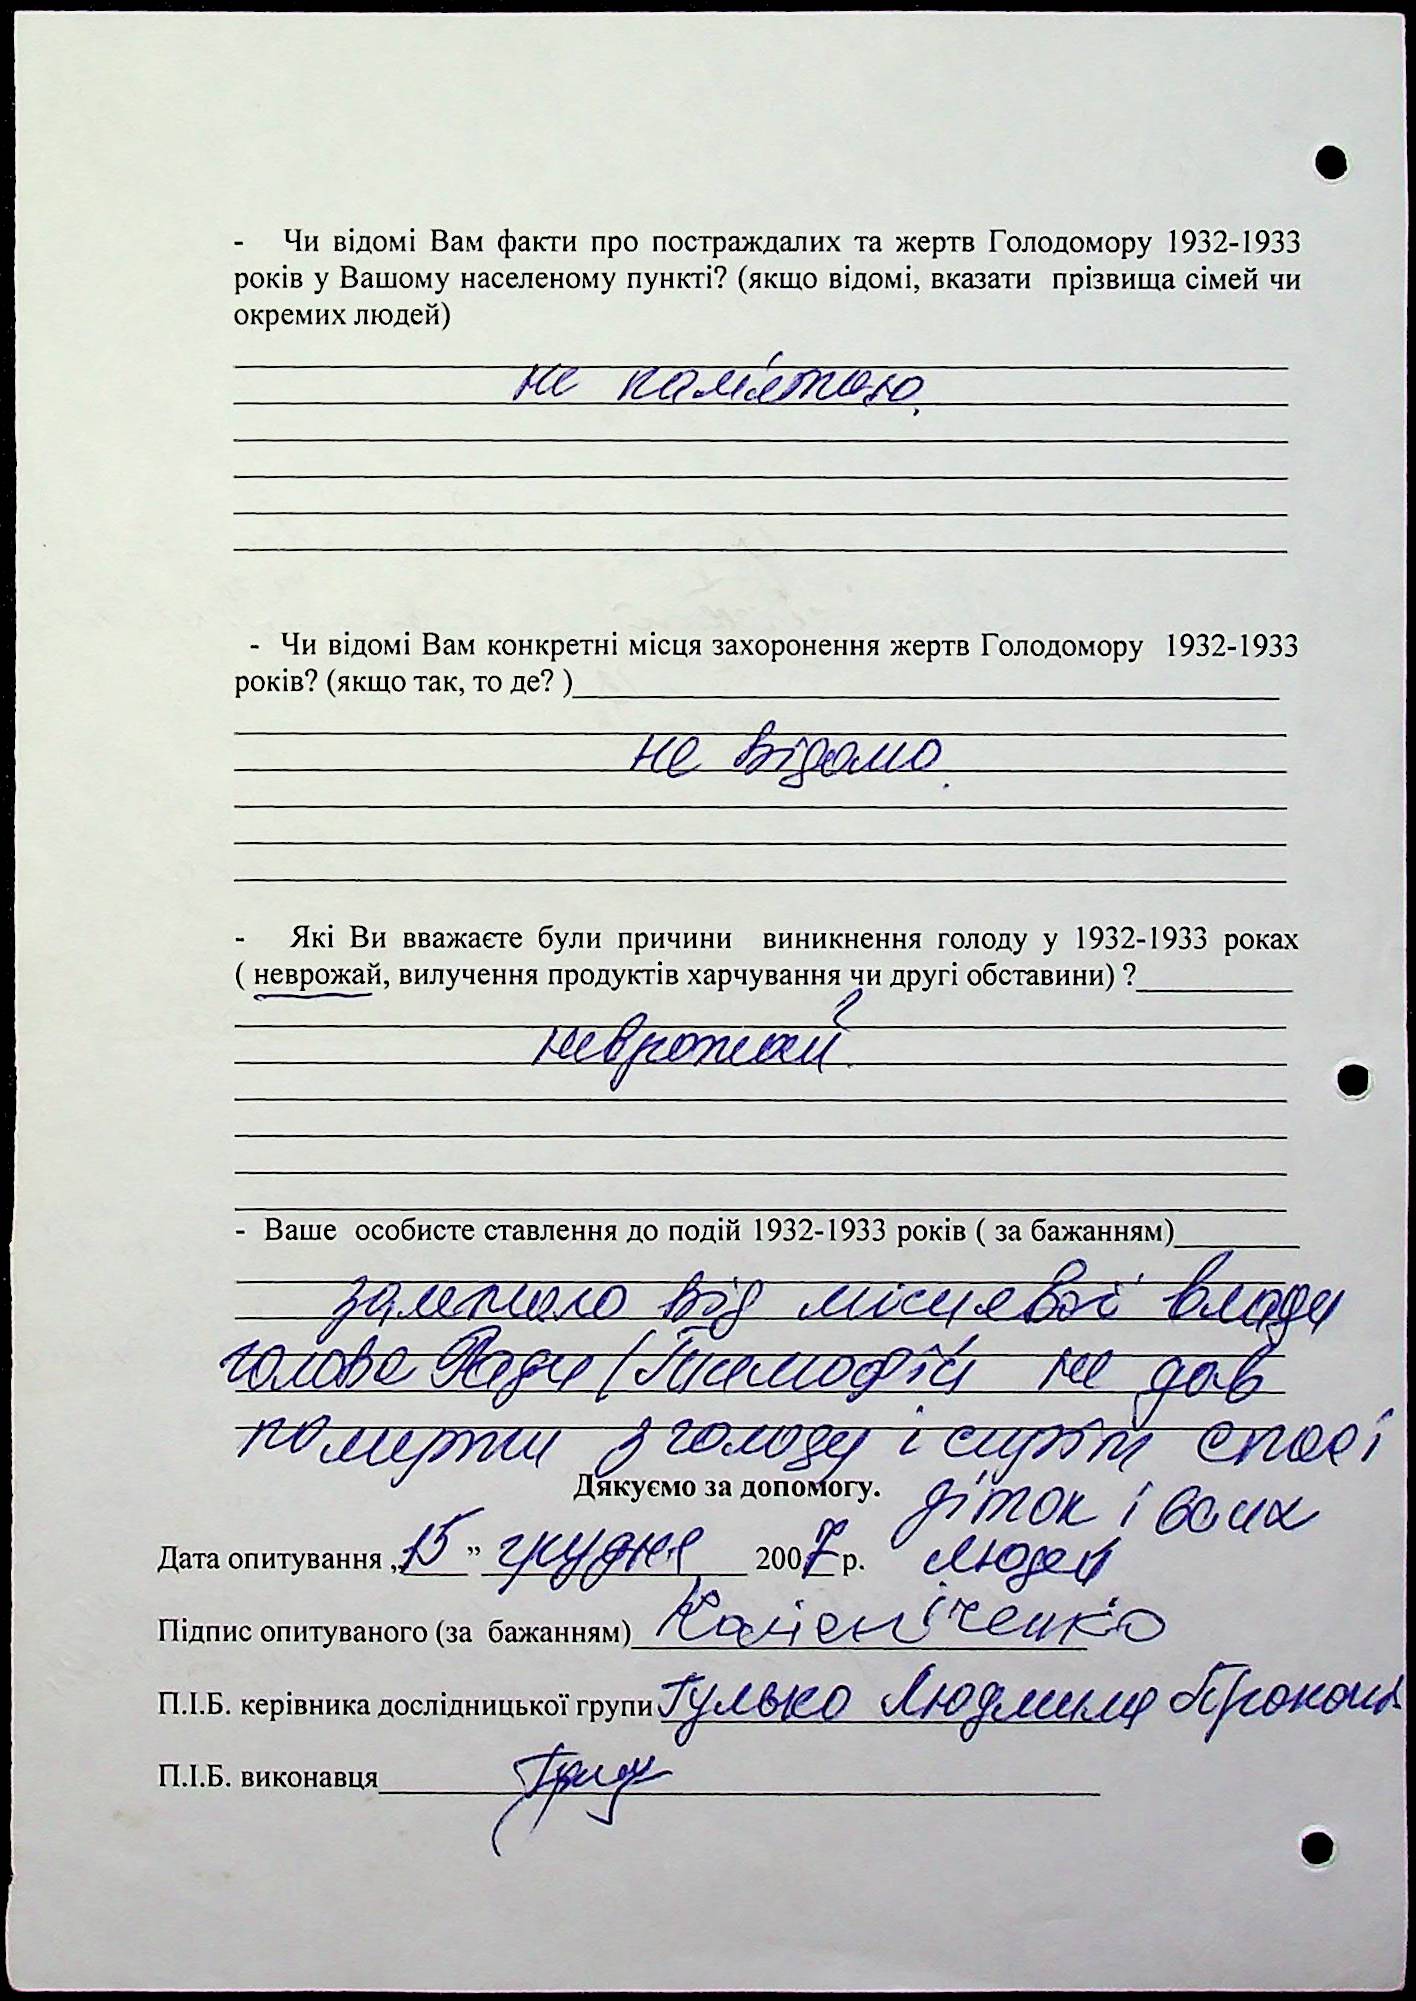 - Чи відомі Вам факти про постраждалих та жертв Голодомору 1932-1933
років у Вашому населеному пункті? (якщо відомі, вказати прізвища сімей чи
окремих людей)
не пам'ятаю.
- Чи відомі Вам конкретні місця захоронення жертв Голодомору 1932-1933
років? (якщо так, то де? )
не відомо.
- Які Ви вважаєте були причини виникнення голоду у 1932-1933 роках
( неврожай, вилучення продуктів харчування чи другі обставини) ?
неврожай.
- Ваше особисте ставлення до подій 1932-1933 років ( за бажанням)
залежало від місцевої влади
голова Ради (Тимофій не дав
померти з голоду і сиріт спас і
Дякуємо за допомогу.
діток і всіх
Дата опитування „15” грудня 2007 р.
людей
Підпис опитуваного (за бажанням)
П.І.Б. керівника дослідницької групи Гулько Людмила
П.І.Б. виконавця